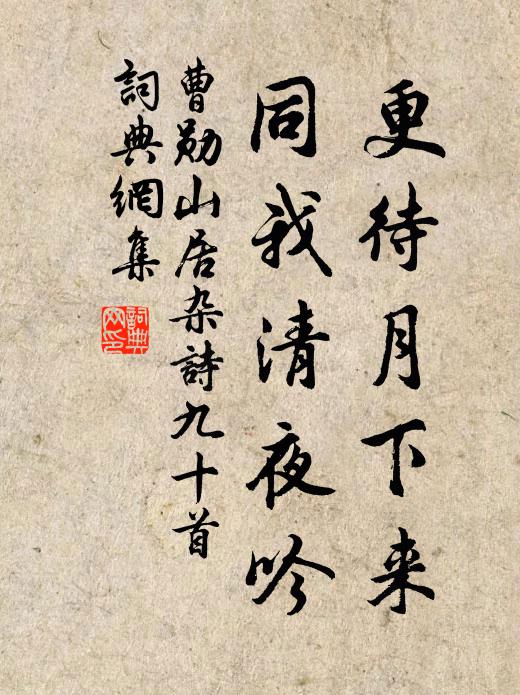 更待月下来
同我清夜吟
曹勋山居杂詩九十首
詞典網集
詞典網印